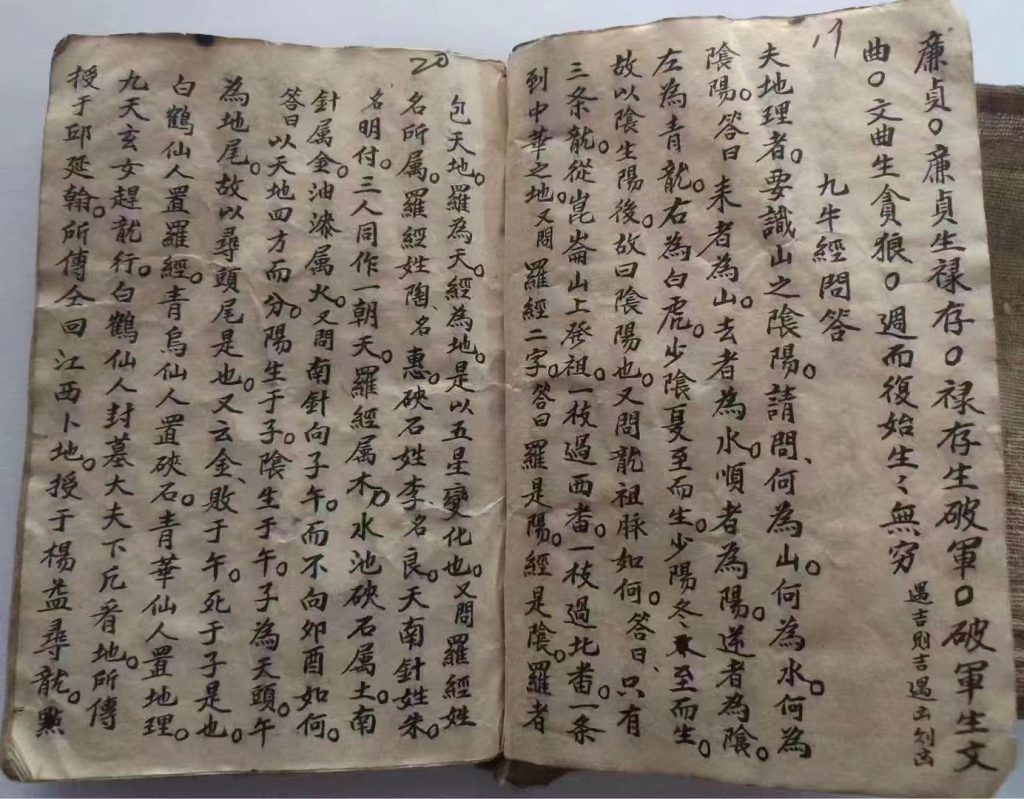 19
廉貞。廉貞生禄存。禄存生破軍。破軍生文
曲。文曲生貪狼。週而復始生〻無穷 遇吉則吉遇凶則凶
九牛經問答
夫地理者。要識山之陰陽。請問、何為山。何為水。何為
陰陽。答曰 来者為山。去者為水。順者為陽。逆者為陰。
左為青龍。右為白虎。少陰夏至而生。少陽冬至而生。
故以陰生陽後。故曰陰陽也。又問龍祖脉如何。答曰、只有
三条龍。從崑崙山上發祖。一枝過西番。一枝過北番。一条
到中華之地。又問 羅經二字。答曰 羅是陽。經是陰。羅者
20
包天地。羅為天。經為地。是以五星變化也。又問羅經姓
名所属。羅經姓陶、名惠。硤石姓李、名良。天南針姓朱。
名明付。三人同作一朝天。羅經属木。水池硤石属土。南
針属金。油漆属火。又問南針向子午。而不向卯酉如何。
答曰以天地四方而分。陽生于子。陰生于午。子為天頭。午
為地尾。故以尋頭尾是也。又云金、敗于午。死于子是也。
白鶴仙人置羅經。青烏仙人置硤石。青華仙人置地理。
九天玄女趕龍行。白鶴仙人封墓大夫下凡看地。所傳
授于邱延翰。所傳全回江西卜地。授于楊益尋龍。點